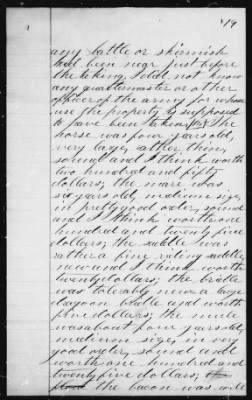 any battle or skirmish
had been near just before
the taking, I did not know
any quartermaster or other
officer of the army for whose
use the property is supposed
to have been taken, the
horse was four years old,
very large, rather thin,
sound and I think worth
two hundred and fifty
dollars; the mare was
six years old, medium size
in pretty good order, sound
and I think worth one
hundred and twenty five
dollars; the saddle was
rather a fine riding saddle,
new and I think worth
twenty dollars; the bridle
was tolerably new large
dragoon bridle and worth
five dollars; the mule
was about four years old,
medium size, in very
good order, sound and
worth one hundred and
twenty five dollars;
the bacon was well